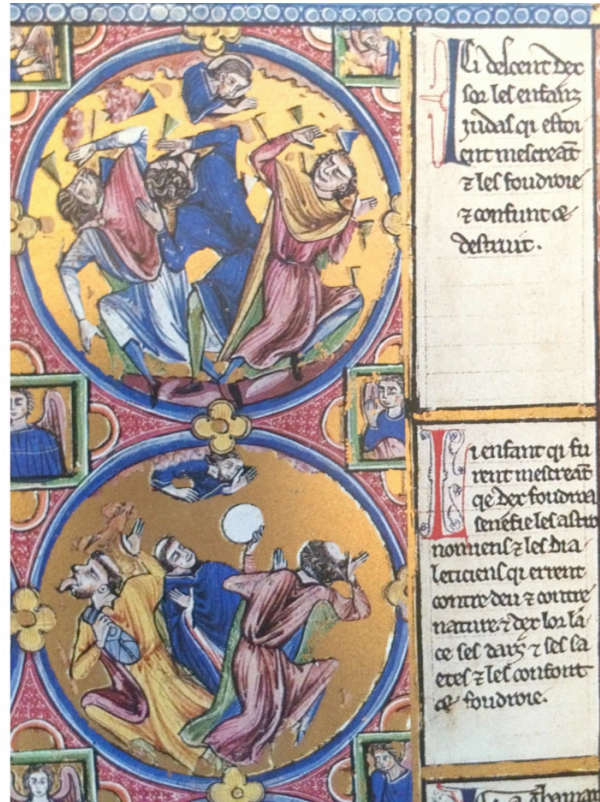 Ici descent dex
sor les enfanz
judas qi estoi
ent mescreāt
⁊ les foudroie
⁊ confunt ⁊
destruit.
Li enfant qi fu
rent mescreāt
qe dex foudroia
senefie les astro
nomiens ⁊ les dia
leticiens qi errent
contre deu ⁊ contre
nature ⁊ dex lor lā
ce ses darz ⁊ ses sa
etes ⁊ les confont
⁊ foudroie.